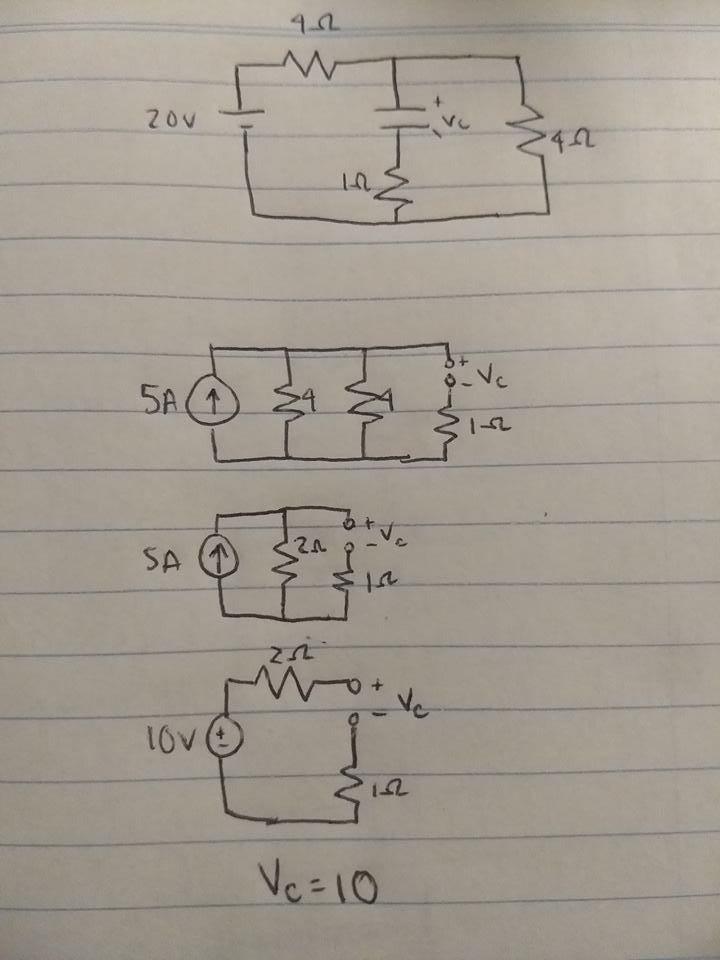 4Ω
20V
+
Vc
-
4Ω
1Ω
5A
4
4
+
- Vc
1Ω
5A
2Ω
+
- Vc
1Ω
2Ω
+
- Vc
10V
+
-
1Ω
Vc = 10